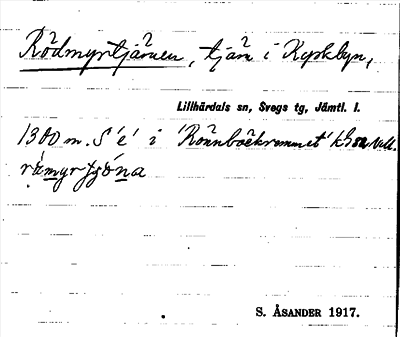 Rödmyrtjärnen, tjärn i Kyrkbyn,
Lillhärdals sn, Svegs tg, Jämtl. l.
1300 m. S é i
rämyrtjóna
S. ÅSANDER 1917.